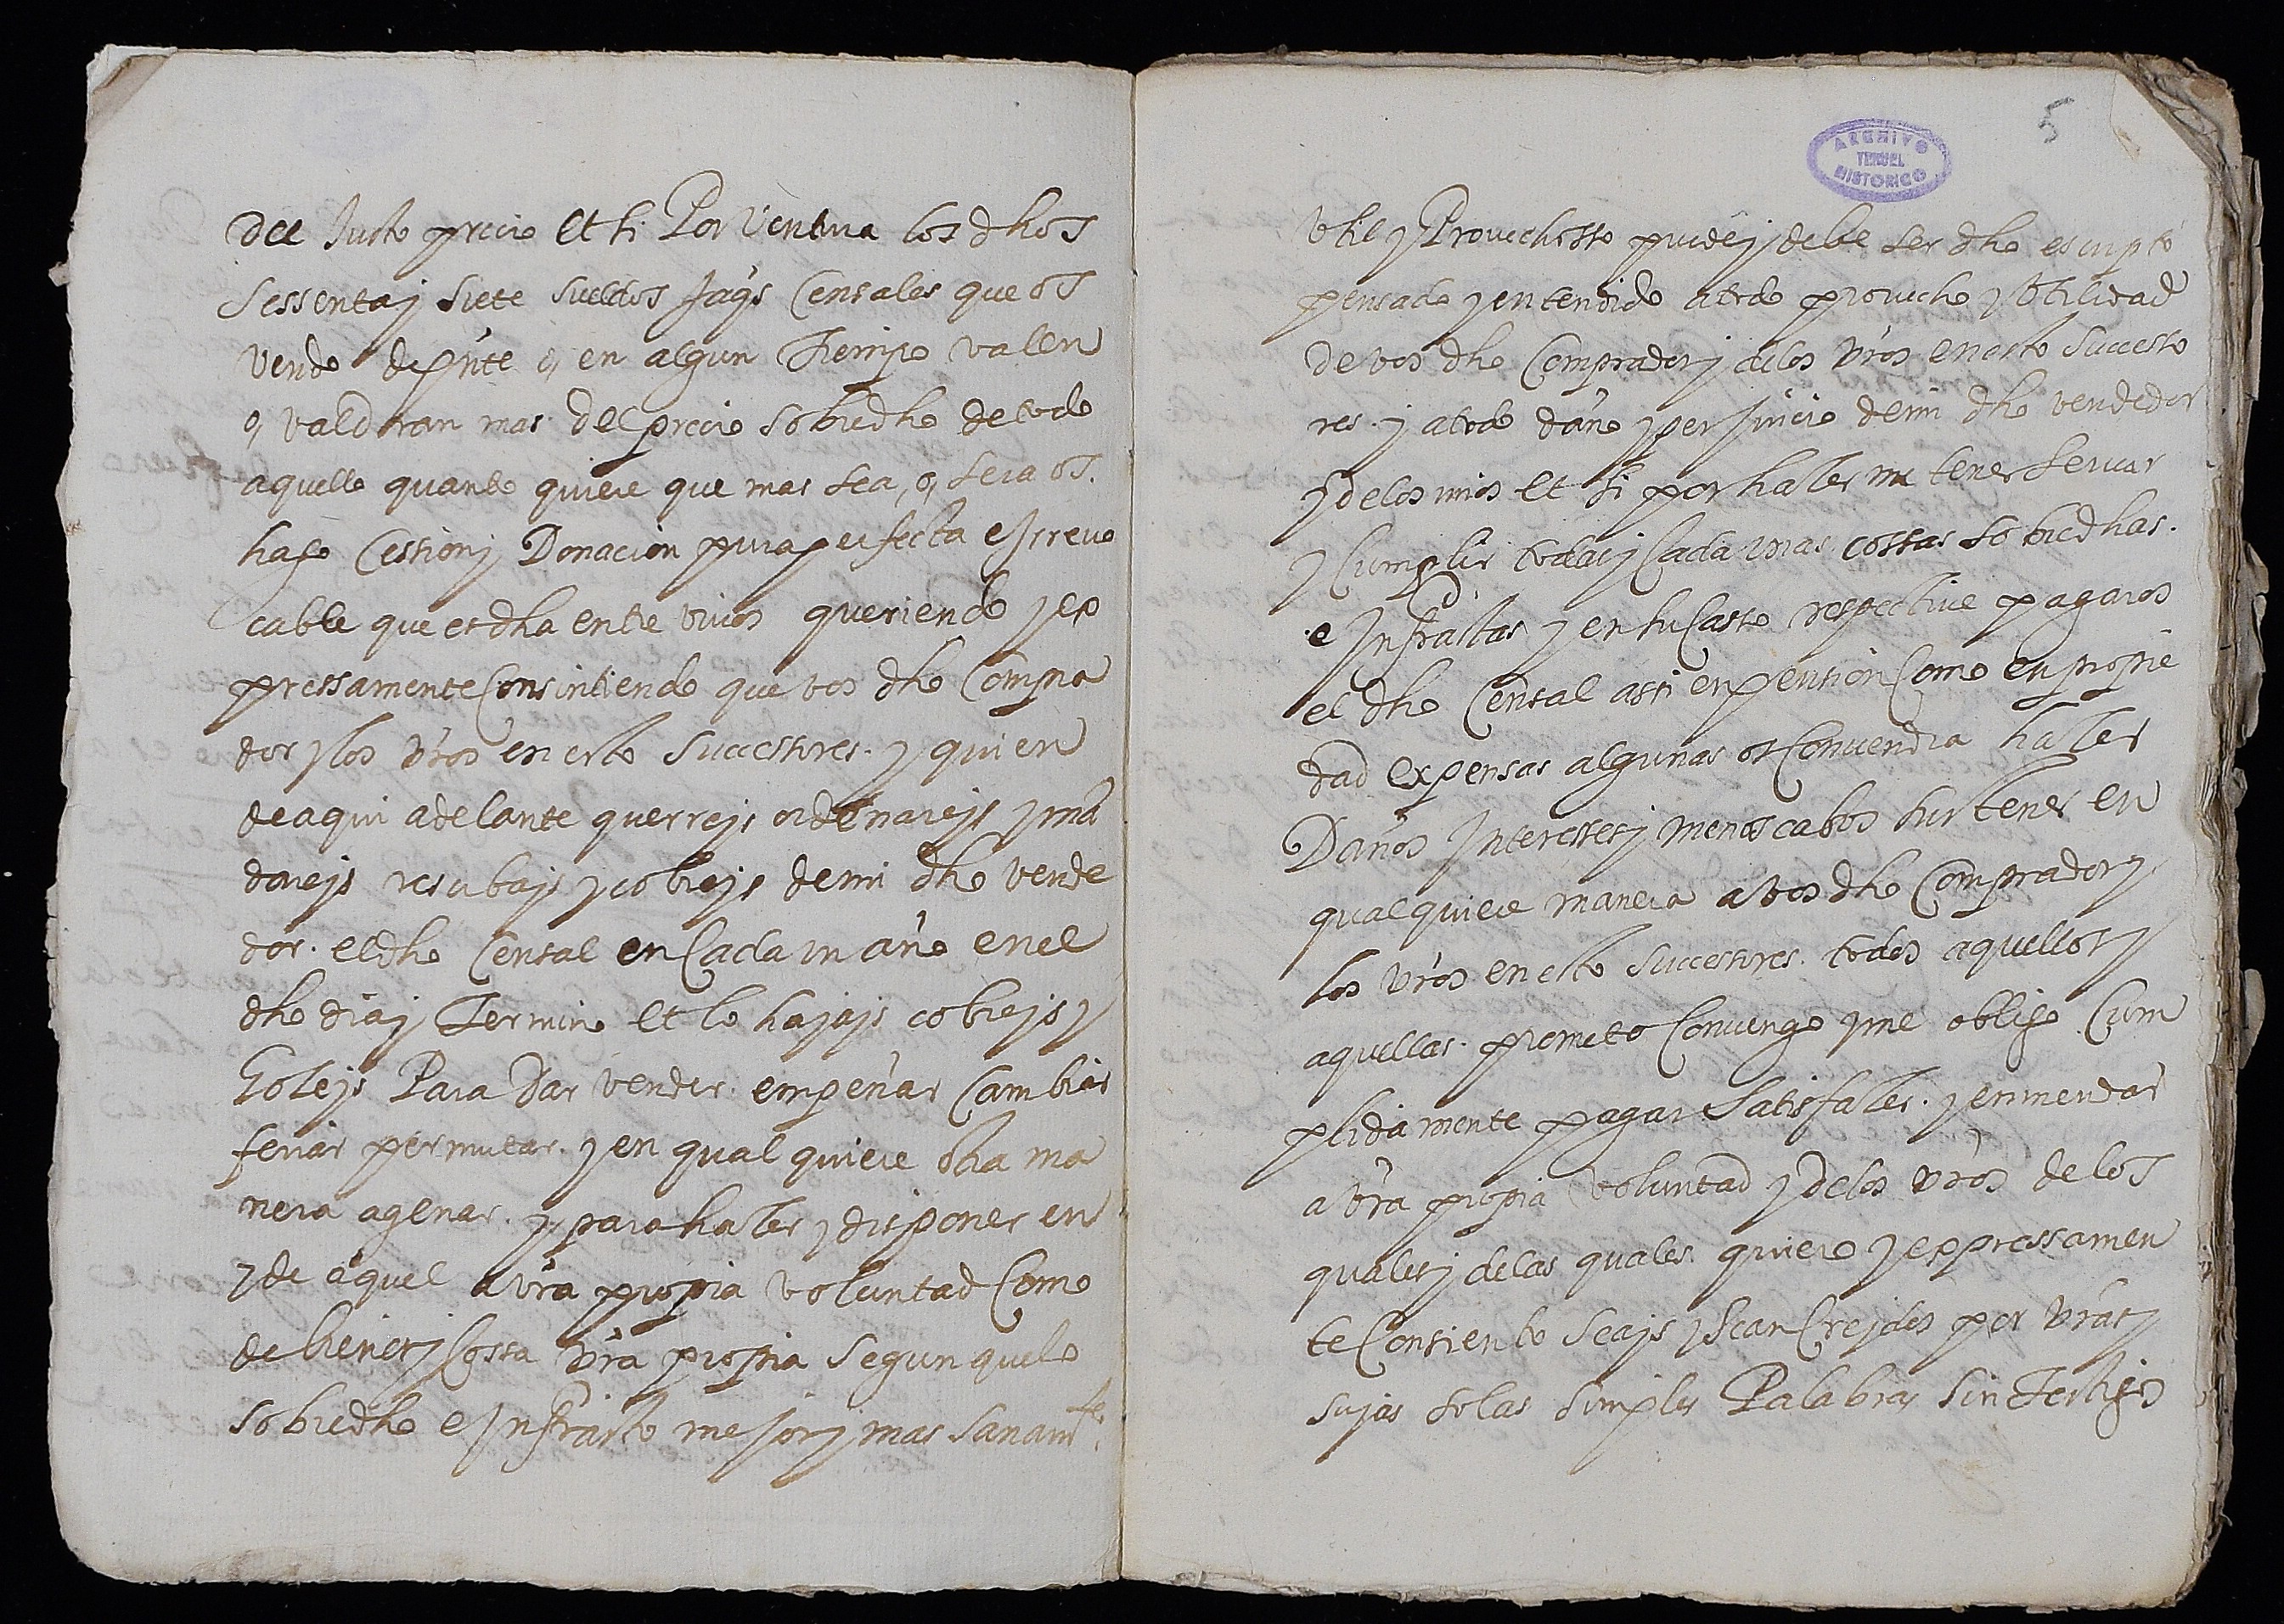 del Justo precio et si Por ventura los dhos
sessentaj siete sueldos Jaqs Censales que os
vendo de pñte o, en algun Tiempo valen
o, valdran mas del precio sobredho de todo
aquello quanto quiere que mas sea, o, sera os.
hago Cessionj Donacion pura perfecta e Jrrevo
cable que es dha entre vivos queriendo y ex
pressamente Consintiendo que vos dho Compra
dor y los vros en esto successores. y quien
de aqui adelante querrejs ordenarejs y mã
darejs rescibajs y cobrejs de mi dho vende
dor. el dho Censal en Cada un año en el
dho diaj Termino et lo hajajs cobrejs y
Gozejs Para Dar vender. empeñar Cambiar
feriar permutar. y en qual quiere otra ma
nera agenar. y para hazer y disponer en
y de aquel a vra propia voluntad Como
de bienesj Cossa vra propia segun que lo
sobredho e Jnfrascto mejorj mas sanamte.
5
ARCHIVO
TERUEL
HISTORICO
Vtil y Provechosso puedej debe ser dho escripto
pensado y entendido a todo provecho y Vtilidad
de vos dho Compradorj de los vros en esto Successo
res. y a todo daño y perjuicio de mi dho vendedor
y de los mios et si por hazer me tener servar
y Cumplir todasj Cada unas cossas sobredhas.
e Jnfraschas y en su Casso respective pagaros
el dho Censal assi en pension Como en propie
dad expensas algunas os Convendra hazer
Daños Jnteressesj menoscabos sustener en
qualquiere manera a vos dho Compradorj
los vros en esto successores. todos aquellosj
aquellas. prometo Convengo y me obligo Cum
plidamente pagar satisfazer. y enmendar
a vra propia voluntad y de los vros de los
qualesj de las quales. quiero y expressamen
te Consiento seajs y sean Crejdos por vrasj
sujas solas simples Palabras sin Testigos